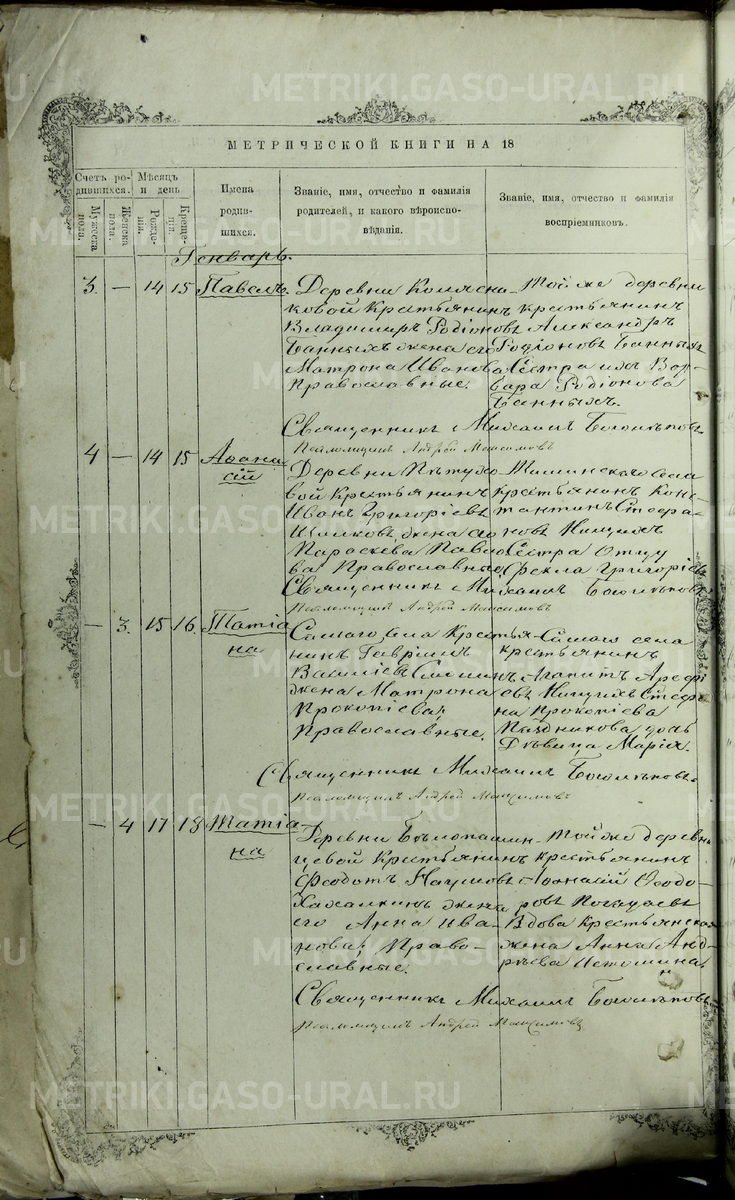 METRIKI.GASO-URAL.RU
МЕТРИЧЕСКОЙ КНИГИ НА 18
Счетъ ро-
дившихся.
Мужеска
пола.
Женска
пола.
Мѣсяцъ
и день
Рожде-
нія.
Креще-
нія.
Имена
родив-
шихся.
Званіе, имя, отчество и фамилія
родителей, и какого вѣроиспо-
вѣданія.
Званіе, имя, отчество и фамилія
воспріемниковъ.
Генварь.
3. — 14 15 Павелъ.
Деревни
ковой Крестьянинъ
Владимиръ Родіоновъ
Банныхъ жена его
Матрона Иванова
Православные.
Той же деревни
крестьянинъ
Александръ
Родіоновъ Банныхъ
Сестра ихъ Вар-
вара Родіонова
Банныхъ.
Священникъ Михаилъ
Псаломщикъ Андрей Максимовъ
4 — 14 15 Аѳана-
сій
Деревни Пѣтухо-
вой Крестьянинъ
Иванъ Григоріевъ
жена его
Параскева Павло-
ва Православные
села
крестьянинъ Конс-
тантинъ Стефа-
новъ
Сестра Отцу
Фекла Григоріева
Священникъ Михаилъ
Псаломщикъ Андрей Максимовъ
— 3. 15 16. Татіа-
на
Самаго села Крестья-
нинъ Гавріилъ
Василіевъ
жена Матрона
Прокопіева;
Православные.
Самаго села
крестьянинъ
Агапитъ Ареѳі-
евъ Стефа-
на Прокопіева
дочь
Дѣвица Марія.
Священникъ Михаилъ
Псаломщикъ Андрей Максимовъ
— 4 17 18 Татіа-
на
Деревни Бѣлопашин-
цевой Крестьянинъ
Феодотъ Наумовъ
жена
его Анна Ива-
нова; Право-
славные.
Той же деревни
крестьянинъ
Аѳонасій Ѳеодо-
ровъ
Вдова Крестьянская
жена Анна Анд-
реева Истомина.
Священникъ Михаилъ
Псаломщикъ Андрей Максимовъ